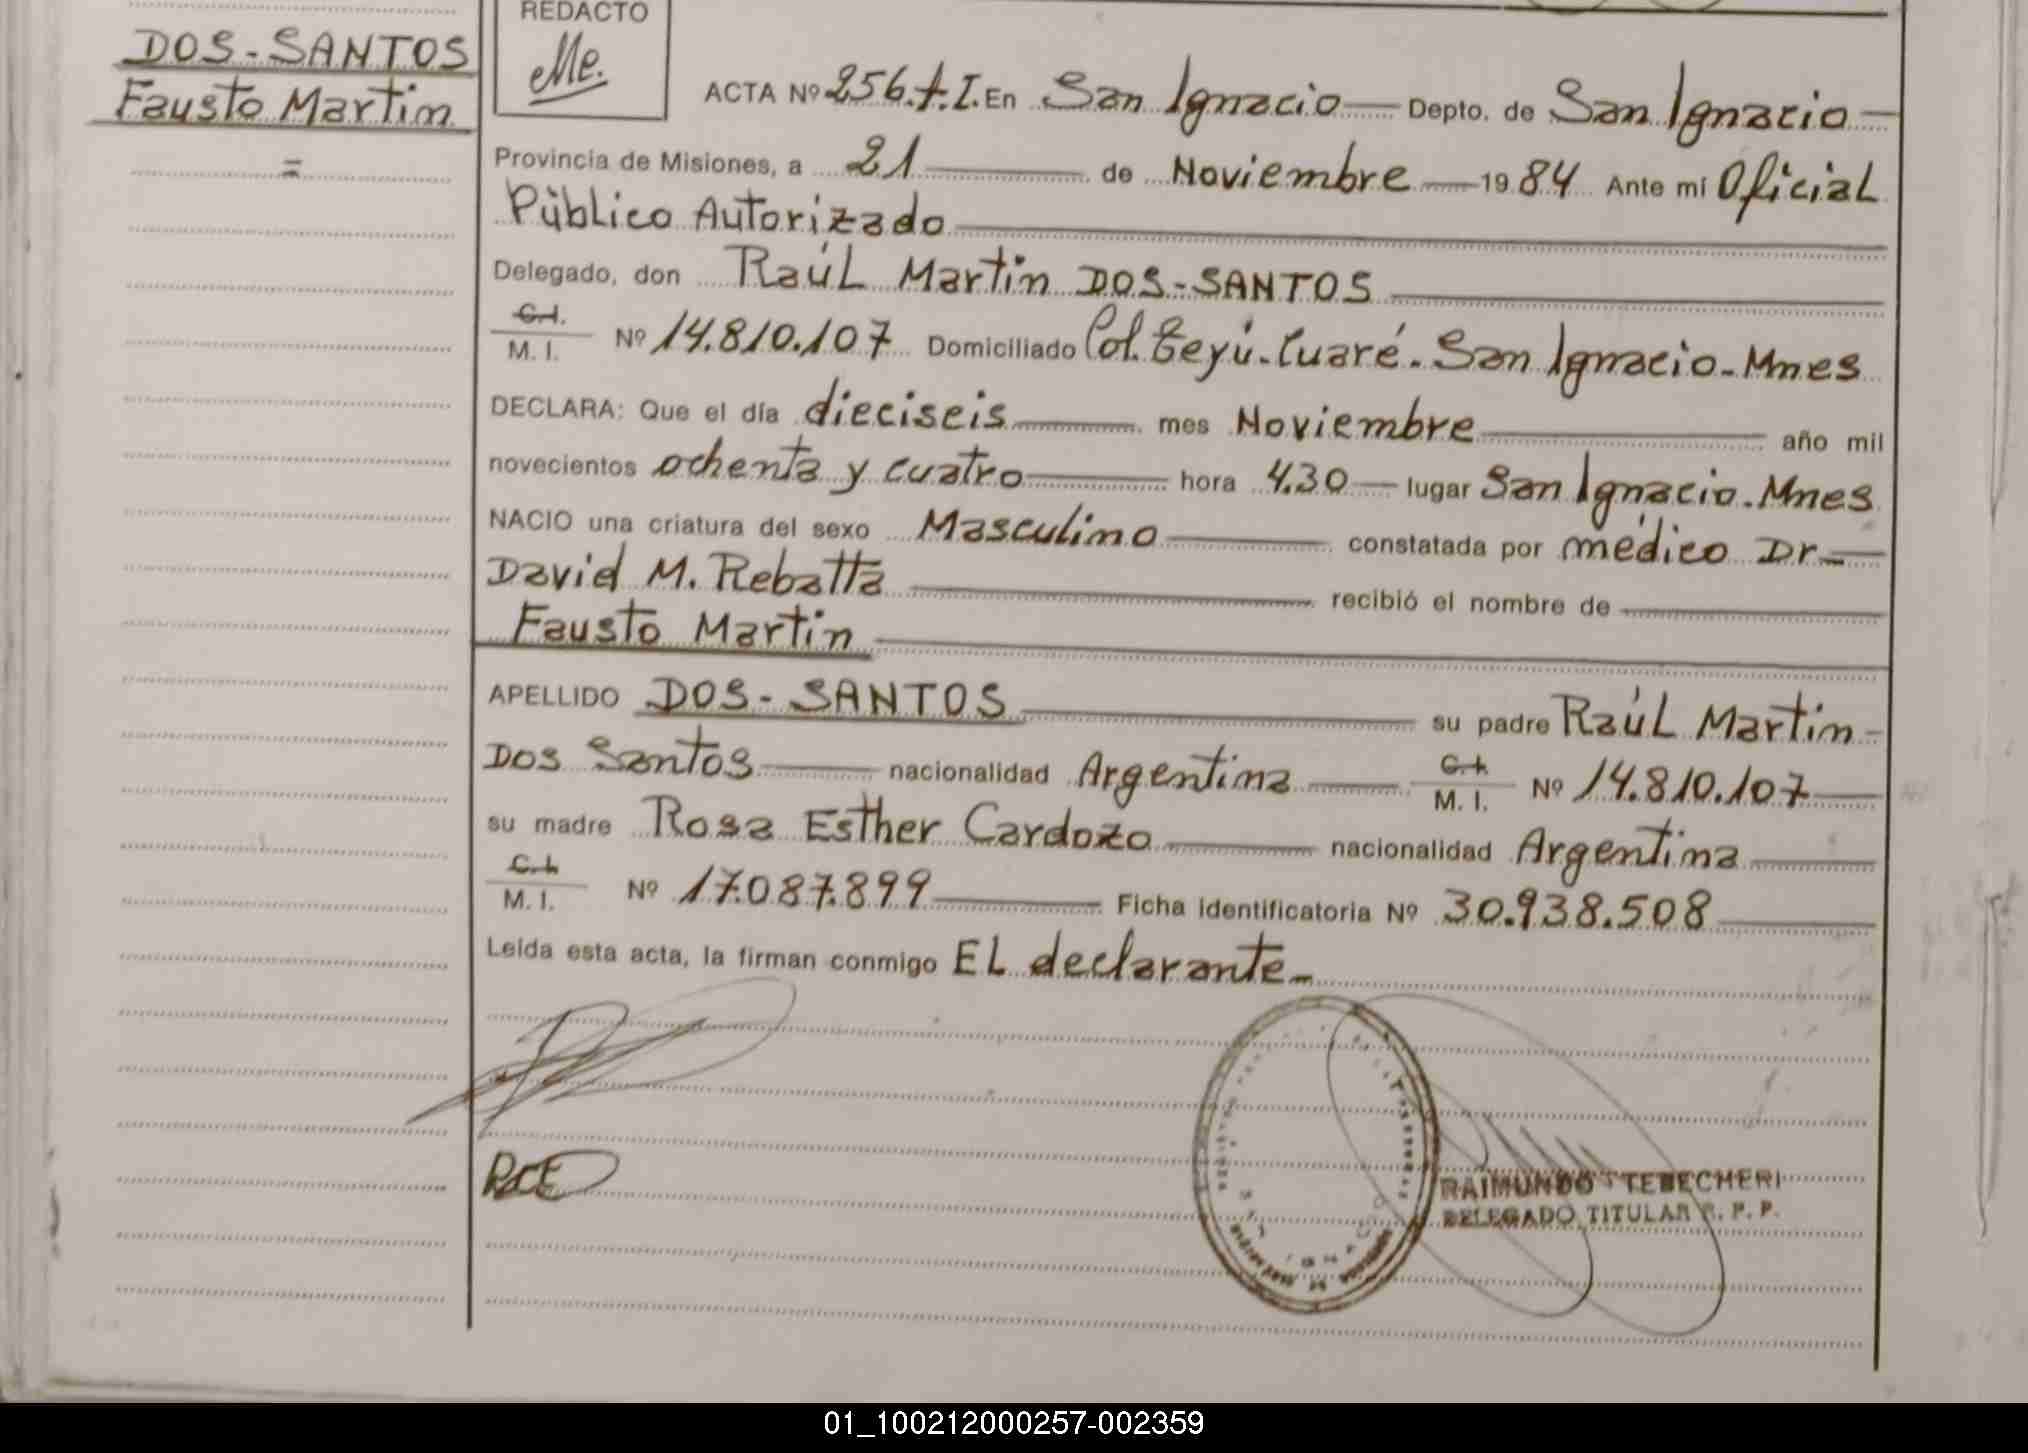 DOS-SANTOS
Fausto Martin
=
REDACTO
ACTA Nº 256.t.I. En San Ignacio Depto. de San Ignacio
Provincia de Misiones, a 21 de Noviembre 1984 Ante mí Oficial
Público Autorizado
Delegado, don Raúl Martin DOS-SANTOS
C.I.
M. I. Nº 14.810.107 Domiciliado Col. Teyú-Cuaré. San Ignacio-Mnes
DECLARA: Que el día dieciseis mes Noviembre año mil
novecientos ochenta y cuatro hora 4.30 lugar San Ignacio. Mnes
NACIO una criatura del sexo Masculino constatada por médico Dr
David M. Rebatta recibió el nombre de
Fausto Martin
APELLIDO DOS-SANTOS su padre Raúl Martin
Dos Santos nacionalidad Argentina C.I. M. I. Nº 14.810.107
su madre Rosa Esther Cardozo nacionalidad Argentina
C.I.
M. I. Nº 17.087.899 Ficha identificatoria Nº 30.938.508
Leída esta acta, la firman conmigo EL declarante
RAIMUNDO TEBECHERI
DELEGADO TITULAR R. P. P.
01_100212000257-002359